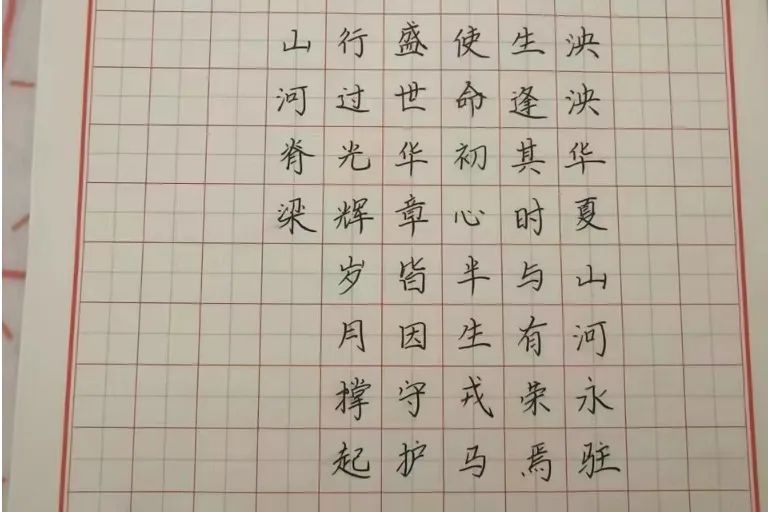 泱泱华夏山河永驻
生逢其时与有荣焉
使命初心半生戎马
盛世华章皆因守护
行过光辉岁月撑起
山河脊梁